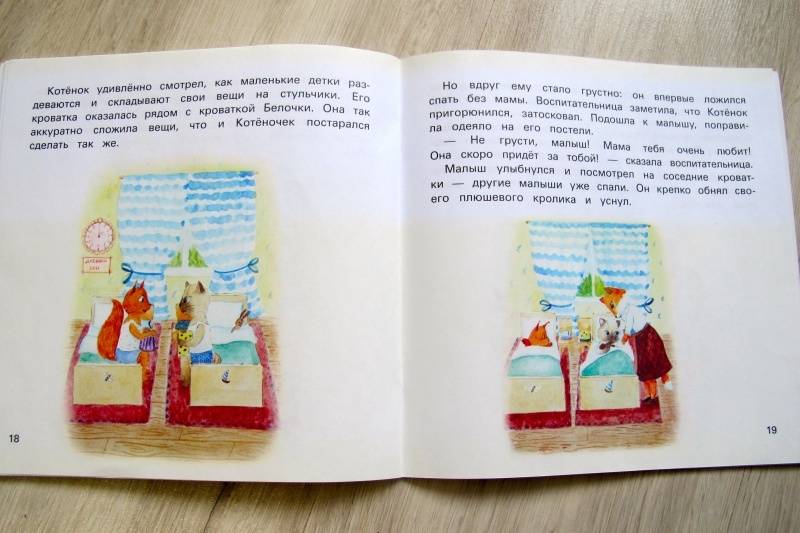 Котёнок удивлённо смотрел, как маленькие детки раз-
деваются и складывают свои вещи на стульчики. Его
кроватка оказалась рядом с кроваткой Белочки. Она так
аккуратно сложила вещи, что и Котёночек постарался
сделать так же.
18
Но вдруг ему стало грустно: он впервые ложился
спать без мамы. Воспитательница заметила, что Котёнок
пригорюнился, затосковал. Подошла к малышу, поправи-
ла одеяло на его постели.
— Не грусти, малыш! Мама тебя очень любит!
Она скоро придёт за тобой! — сказала воспитательница.
Малыш улыбнулся и посмотрел на соседние кроват-
ки — другие малыши уже спали. Он крепко обнял сво-
его плюшевого кролика и уснул.
19